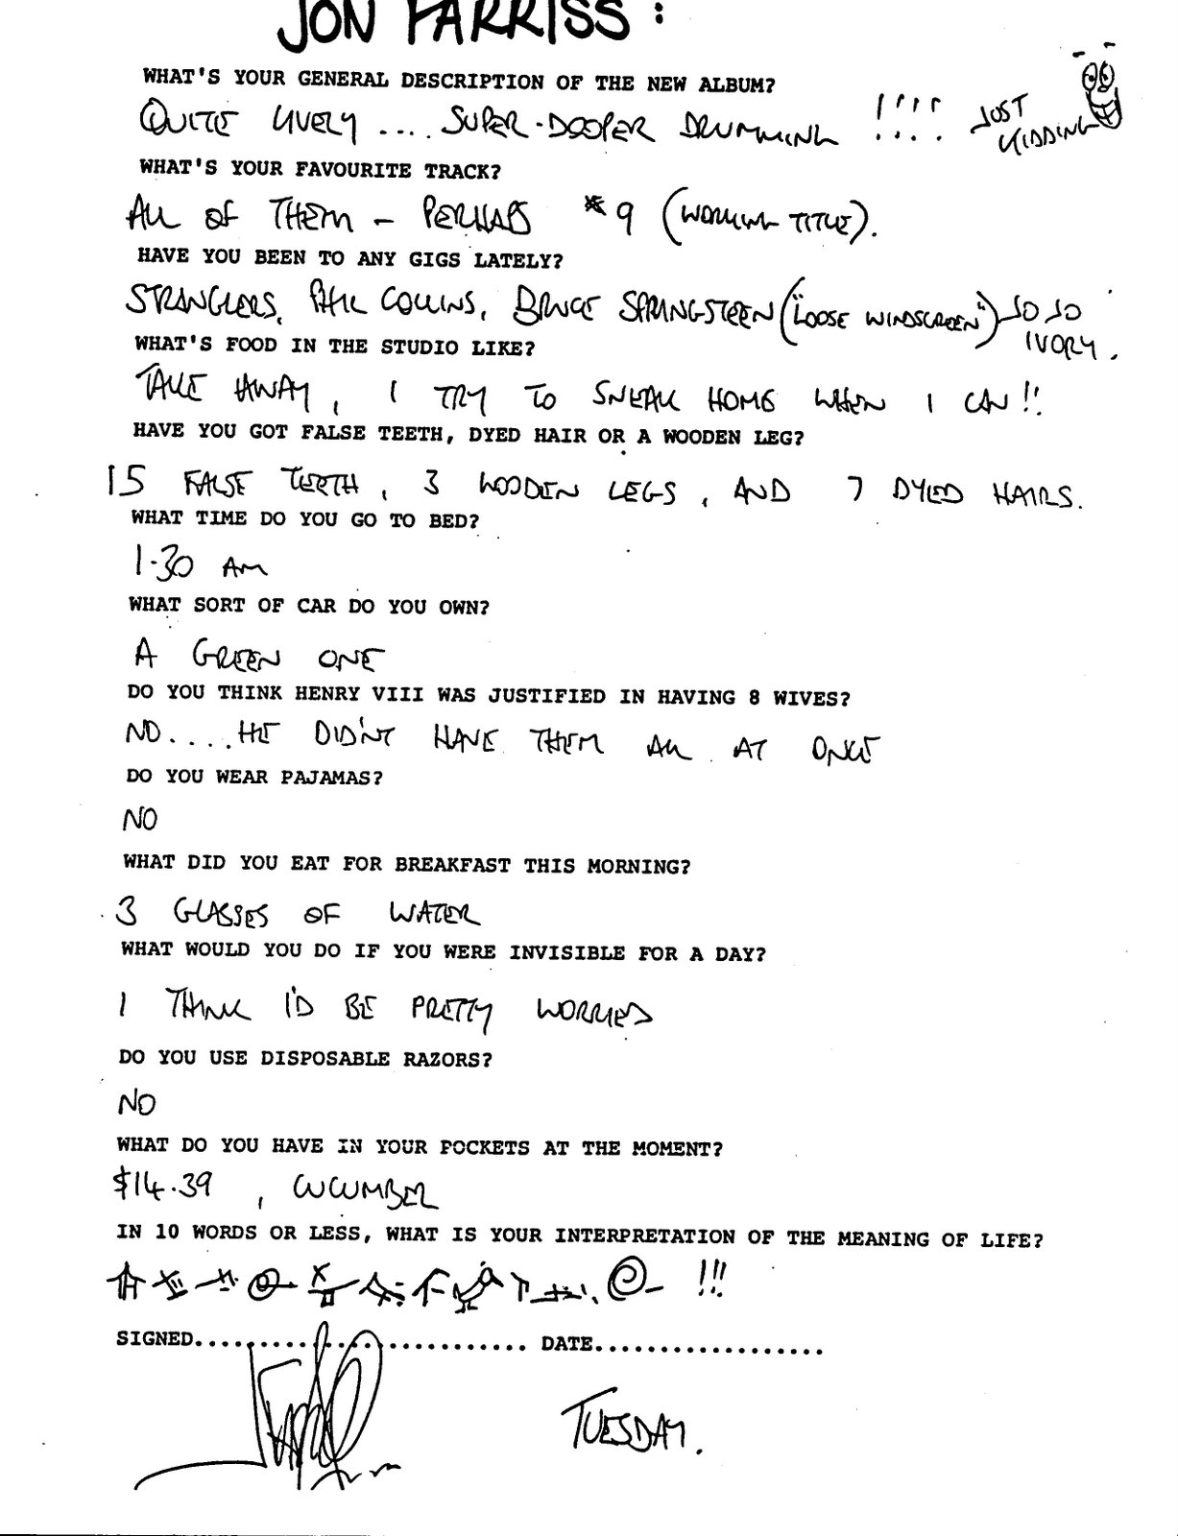 JON FARRISS:
WHAT'S YOUR GENERAL DESCRIPTION OF THE NEW ALBUM?
QUITE LIVELY .... SUPER-DOOPER DRUMMING !!!! JUST
KIDDING
WHAT'S YOUR FAVOURITE TRACK?
ALL OF THEM - PERHAPS *9 (WORKING TITLE).
HAVE YOU BEEN TO ANY GIGS LATELY?
STRANGLERS, PHIL COLLINS, BRUCE SPRINGSTEEN ("LOOSE WINDSCREEN") JO JO
IVORY.
WHAT'S FOOD IN THE STUDIO LIKE?
TAKE AWAY, I TRY TO SNEAK HOME WHEN I CAN!!
HAVE YOU GOT FALSE TEETH, DYED HAIR OR A WOODEN LEG?
15 FALSE TEETH, 3 WOODEN LEGS, AND 7 DYED HAIRS.
WHAT TIME DO YOU GO TO BED?
1.30 AM
WHAT SORT OF CAR DO YOU OWN?
A GREEN ONE
DO YOU THINK HENRY VIII WAS JUSTIFIED IN HAVING 8 WIVES?
NO.... HE DIDN'T HAVE THEM ALL AT ONCE
DO YOU WEAR PAJAMAS?
NO
WHAT DID YOU EAT FOR BREAKFAST THIS MORNING?
3 GLASSES OF WATER
WHAT WOULD YOU DO IF YOU WERE INVISIBLE FOR A DAY?
I THINK I'D BE PRETTY WORRIED
DO YOU USE DISPOSABLE RAZORS?
NO
WHAT DO YOU HAVE IN YOUR POCKETS AT THE MOMENT?
$14.39, CUCUMBER
IN 10 WORDS OR LESS, WHAT IS YOUR INTERPRETATION OF THE MEANING OF LIFE?
!!!
SIGNED.......................... DATE..................
TUESDAY.